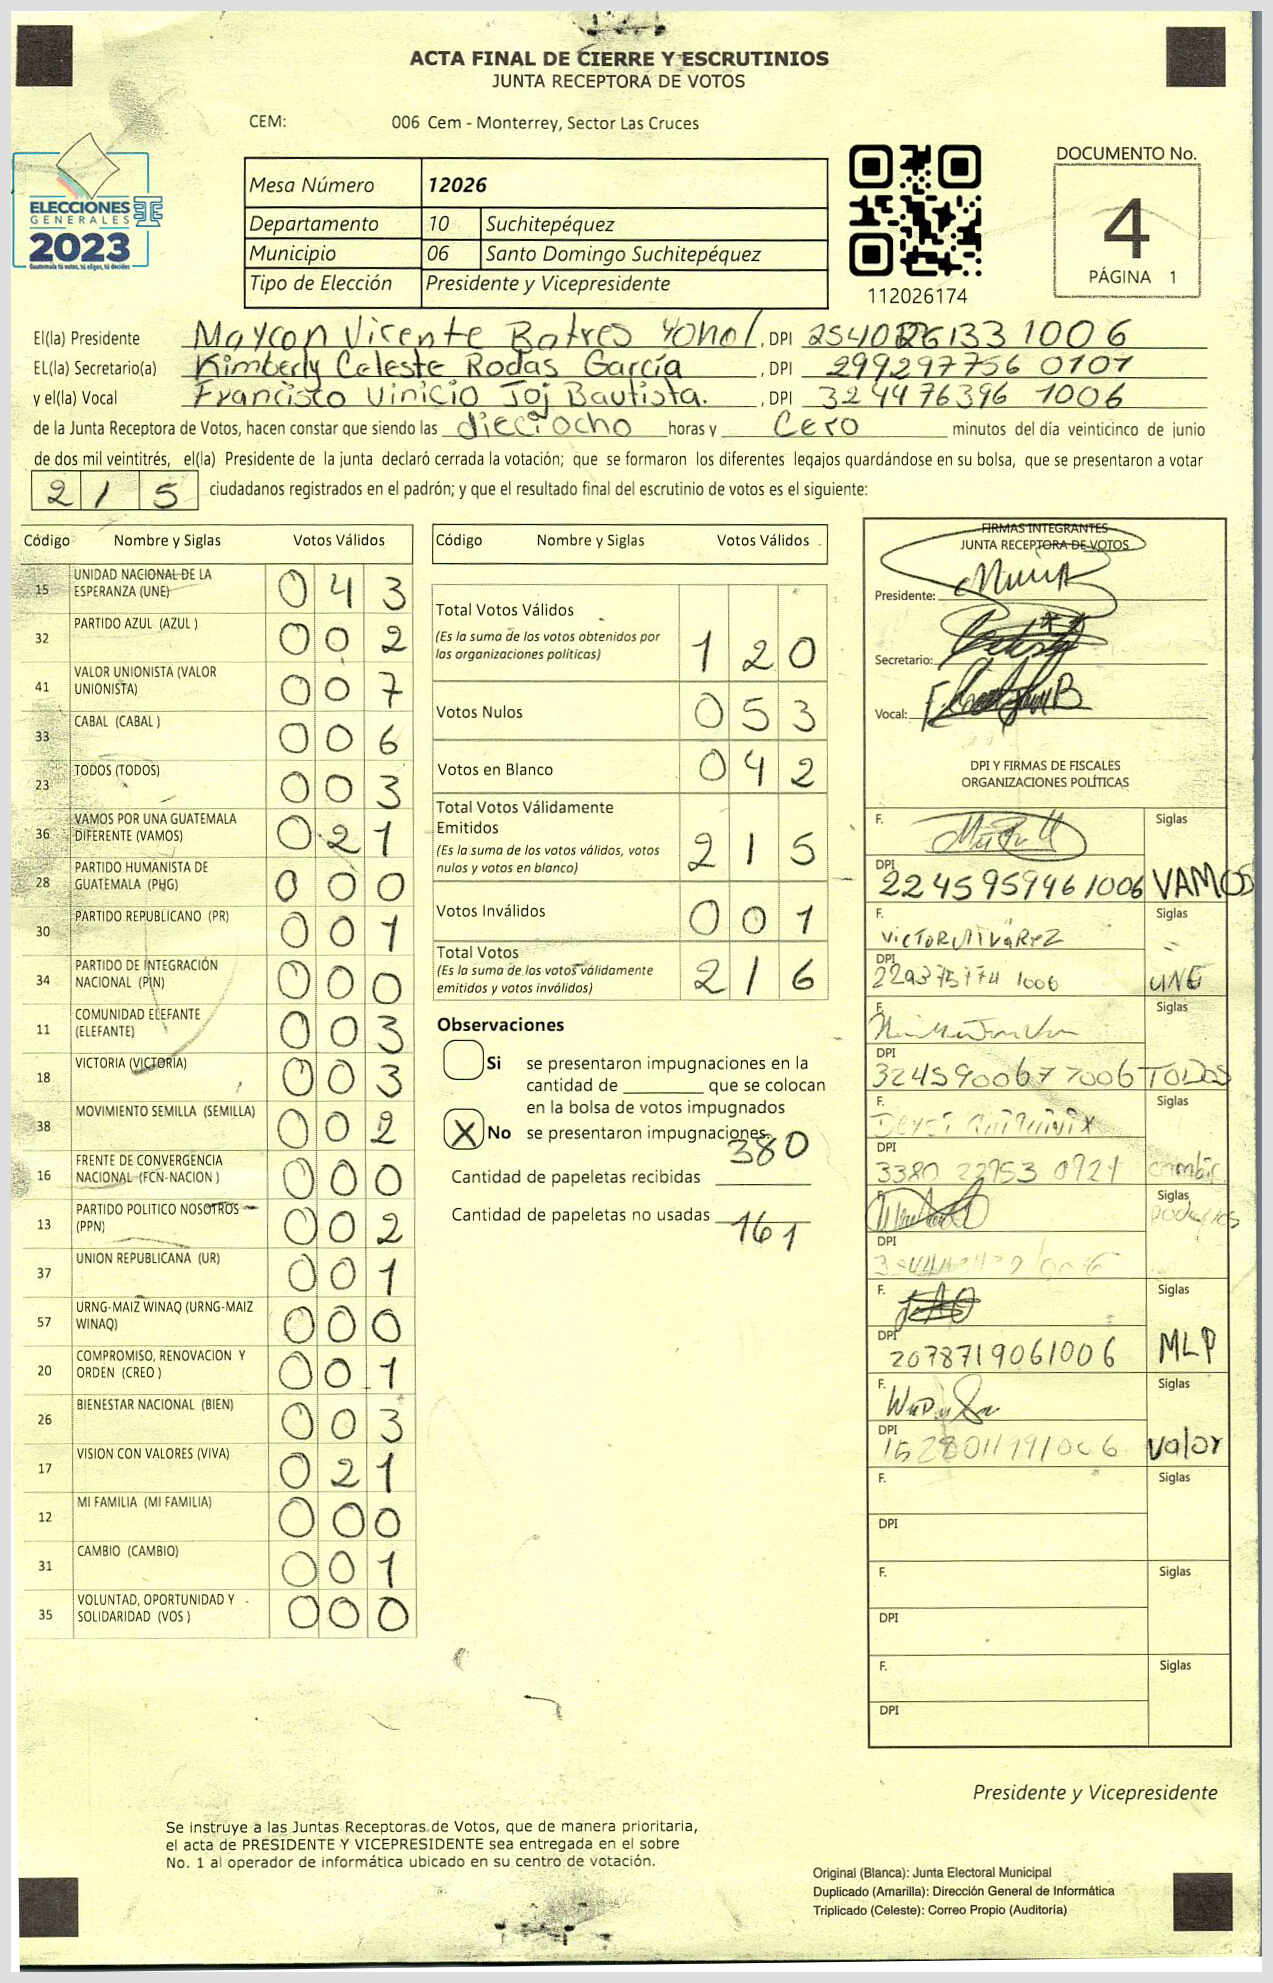 ACTA FINAL DE CIERRE Y ESCRUTINIOS
JUNTA RECEPTORA DE VOTOS
CEM: 006 Cem - Monterrey, Sector Las Cruces
ELECCIONES
GENERALES
2023
Guatemala tú votas, tú eliges, tú decides
Mesa Número 12026
Departamento 10 Suchitepéquez
Municipio 06 Santo Domingo Suchitepéquez
Tipo de Elección Presidente y Vicepresidente
112026174
DOCUMENTO No.
4
PÁGINA 1
El(la) Presidente Maycon Vicente Batres Yonol, DPI
EL(la) Secretario(a) Kimberly Celeste Rodas García, DPI 299297756 0101
y el(la) Vocal Francisco Vinicio Toj Bautista., DPI 324476396 1006
de la Junta Receptora de Votos, hacen constar que siendo las dieciocho horas y Cero minutos del día veinticinco de junio
de dos mil veintitrés, el(la) Presidente de la junta declaró cerrada la votación; que se formaron los diferentes legajos guardándose en su bolsa, que se presentaron a votar
215 ciudadanos registrados en el padrón; y que el resultado final del escrutinio de votos es el siguiente:
Código Nombre y Siglas Votos Válidos
15 UNIDAD NACIONAL DE LA ESPERANZA (UNE) 043
32 PARTIDO AZUL (AZUL ) 002
41 VALOR UNIONISTA (VALOR UNIONISTA) 007
33 CABAL (CABAL ) 006
23 TODOS (TODOS) 003
36 VAMOS POR UNA GUATEMALA DIFERENTE (VAMOS) 021
28 PARTIDO HUMANISTA DE GUATEMALA (PHG) 000
30 PARTIDO REPUBLICANO (PR) 001
34 PARTIDO DE INTEGRACIÓN NACIONAL (PIN) 000
11 COMUNIDAD ELEFANTE (ELEFANTE) 003
18 VICTORIA (VICTORIA) 003
38 MOVIMIENTO SEMILLA (SEMILLA) 002
16 FRENTE DE CONVERGENCIA NACIONAL (FCN-NACION ) 000
13 PARTIDO POLITICO NOSOTROS (PPN) 002
37 UNION REPUBLICANA (UR) 001
57 URNG-MAIZ WINAQ (URNG-MAIZ WINAQ) 000
20 COMPROMISO, RENOVACION Y ORDEN (CREO ) 001
26 BIENESTAR NACIONAL (BIEN) 003
17 VISION CON VALORES (VIVA) 021
12 MI FAMILIA (MI FAMILIA) 000
31 CAMBIO (CAMBIO) 001
35 VOLUNTAD, OPORTUNIDAD Y SOLIDARIDAD (VOS ) 000
Código Nombre y Siglas Votos Válidos
Total Votos Válidos
(Es la suma de los votos obtenidos por
las organizaciones políticas) 120
Votos Nulos 053
Votos en Blanco 042
Total Votos Válidamente
Emitidos
(Es la suma de los votos válidos, votos
nulos y votos en blanco) 215
Votos Inválidos 001
Total Votos
(Es la suma de los votos válidamente
emitidos y votos inválidos) 216
Observaciones
Si se presentaron impugnaciones en la
cantidad de ________ que se colocan
en la bolsa de votos impugnados
X No se presentaron impugnaciones.
Cantidad de papeletas recibidas 380
Cantidad de papeletas no usadas 161
FIRMAS INTEGRANTES
JUNTA RECEPTORA DE VOTOS
Presidente:
Secretario:
Vocal:
DPI Y FIRMAS DE FISCALES
ORGANIZACIONES POLÍTICAS
F. Siglas
DPI 2245959461006 VAMOS
F. Victor Alvarez Siglas
DPI UNE
F. Siglas
DPI TODOS
F. Siglas
DPI
F. Siglas
DPI
F. Siglas
DPI 2078719061006 MLP
F. Siglas
DPI valor
F. Siglas
DPI
F. Siglas
DPI
F. Siglas
DPI
Presidente y Vicepresidente
Se instruye a las Juntas Receptoras de Votos, que de manera prioritaria,
el acta de PRESIDENTE Y VICEPRESIDENTE sea entregada en el sobre
No. 1 al operador de informática ubicado en su centro de votación.
Original (Blanca): Junta Electoral Municipal
Duplicado (Amarilla): Dirección General de Informática
Triplicado (Celeste): Correo Propio (Auditoría)